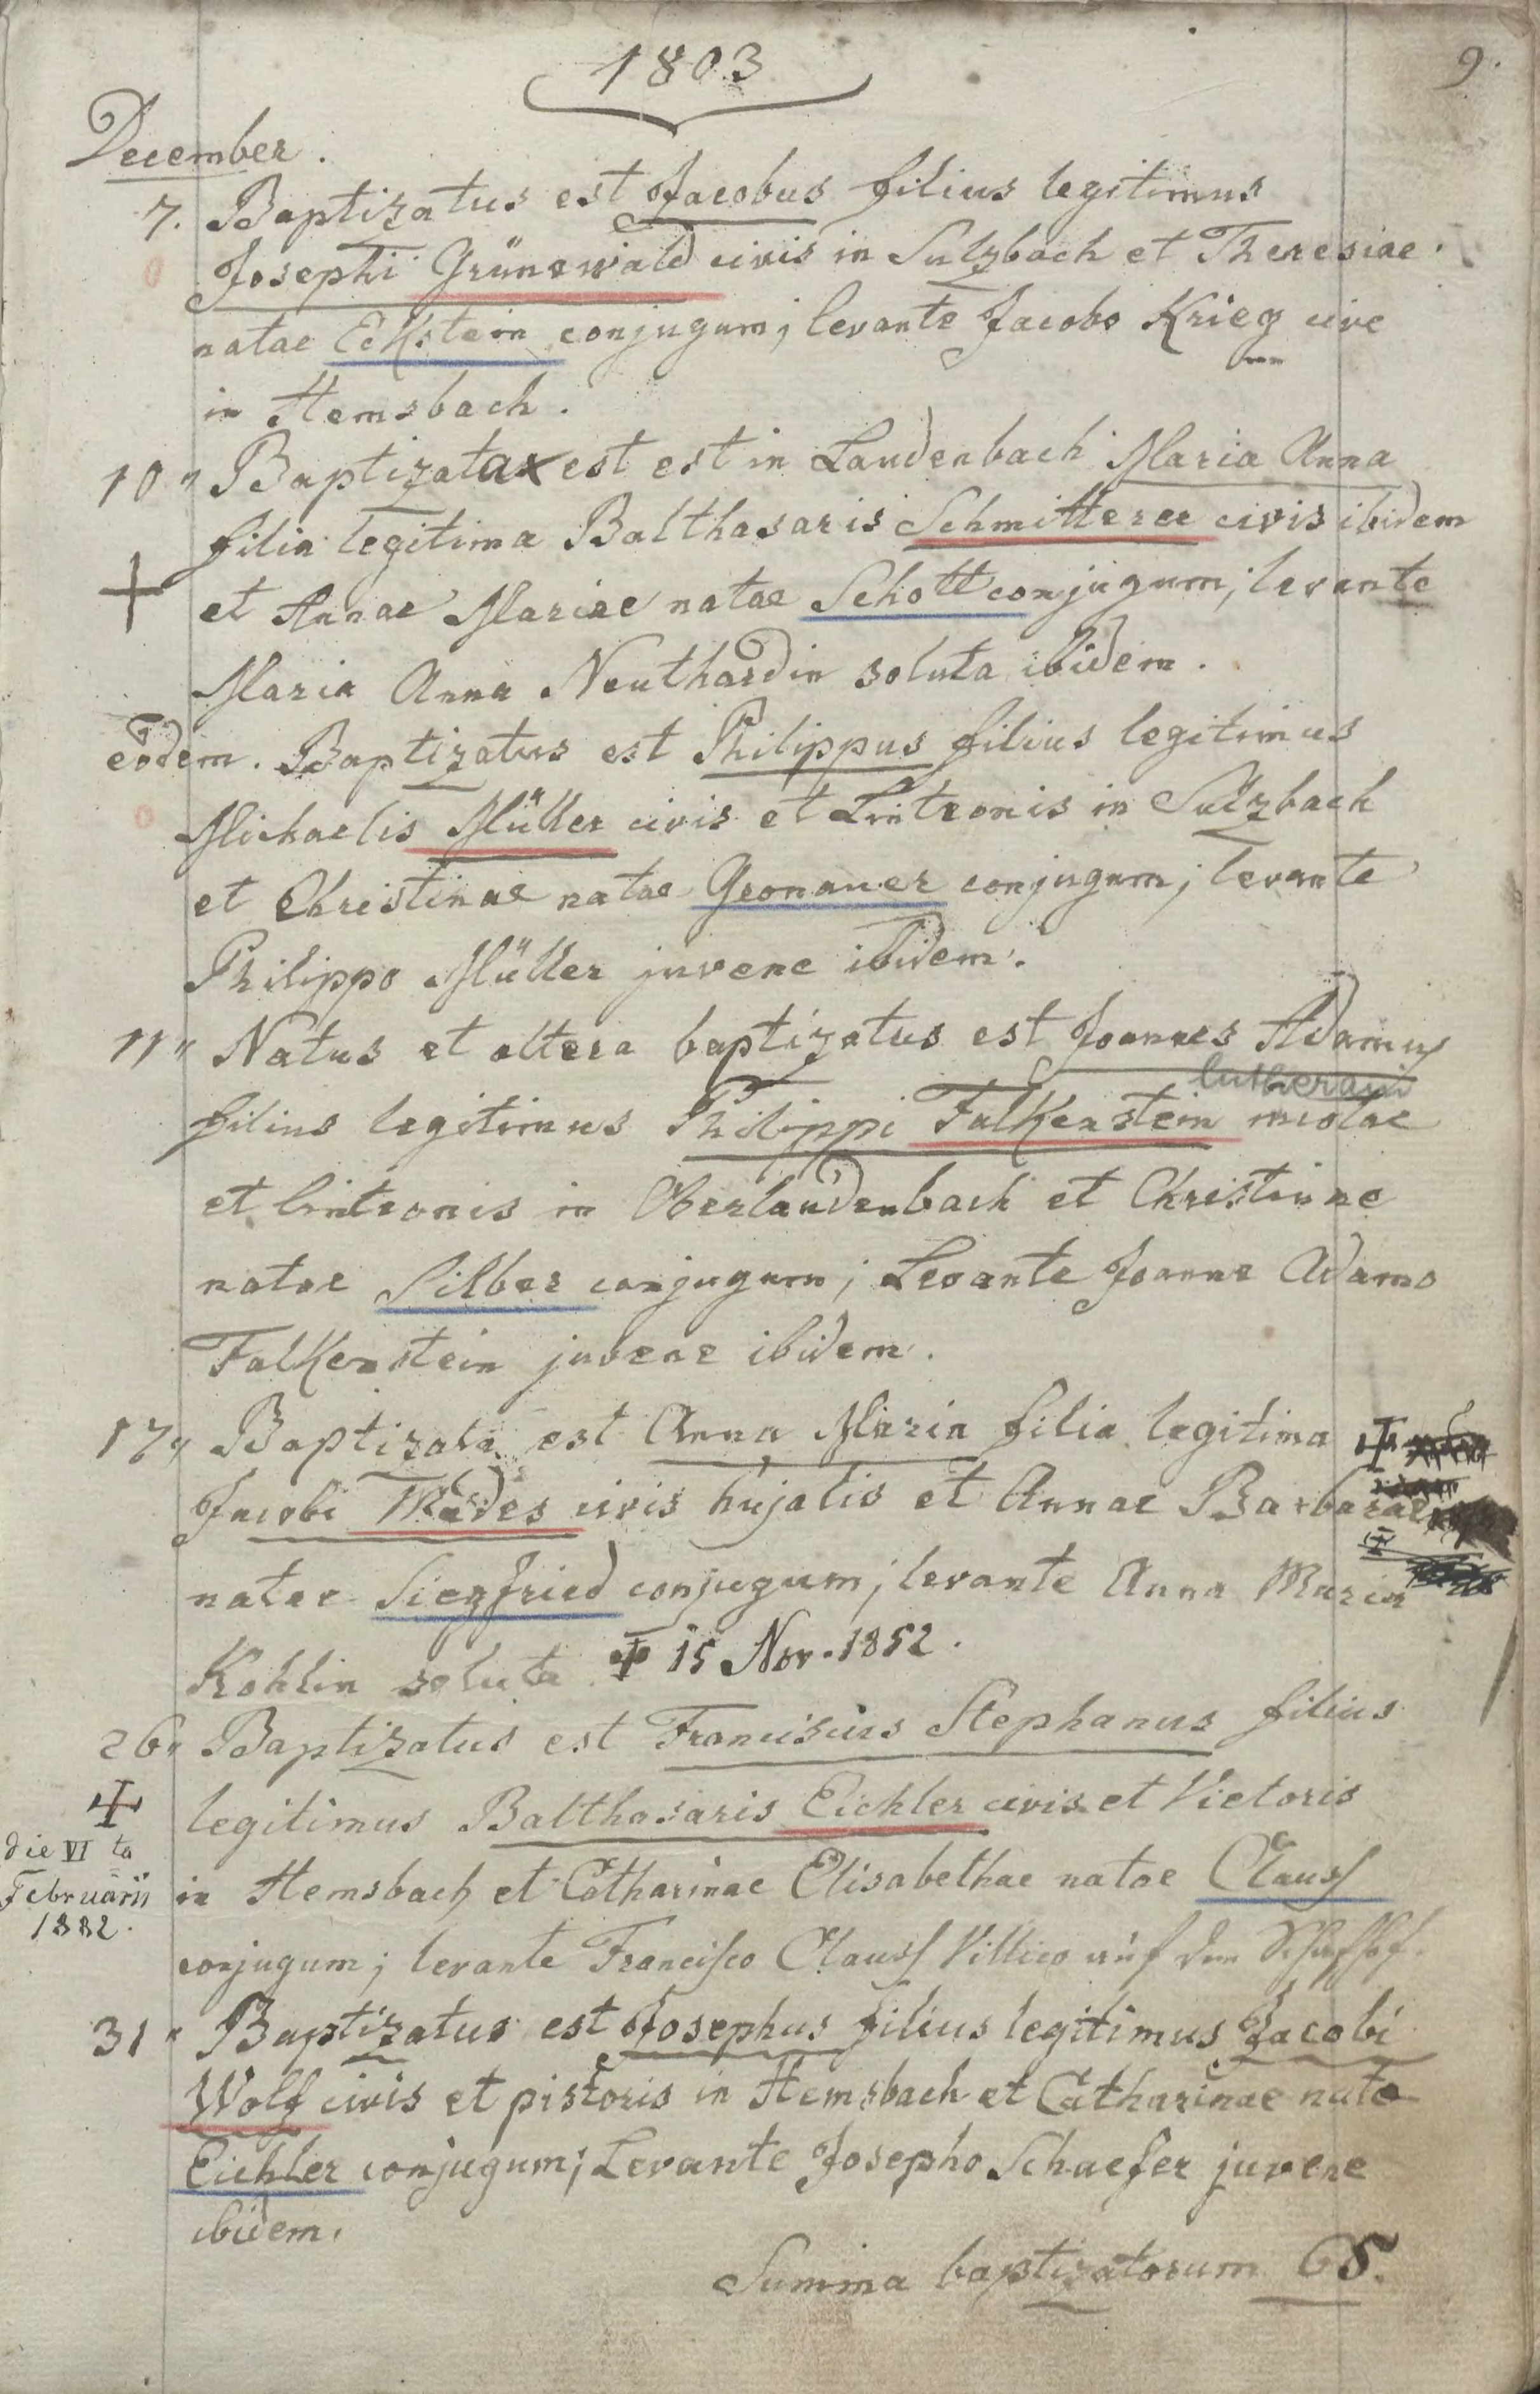 1803
9.
December.
7. Baptizatus est Jacobus filius legitimus
Josephi Grünewald civis in Sulzbach et Theresiae
natae Eckstein conjugum; levante Jacobo Krieg cive
in Hemsbach.
10" Baptizata est est in Laudenbach Maria Anna
filia legitima Balthasaris Schmitterer civis ibidem
et Annae Mariae natae Schott conjugum; levante
Maria Anna Neuthardin soluta ibidem.
eodem. Baptizatus est Philippus filius legitimus
Michaelis Müller civis et Linteonis in Sulzbach
et Christinae natae Gronauer conjugum; levante
Philippo Müller juvene ibidem.
11" Natus et altera baptizatus est Joannes Adamus
lutherani
filius legitimus Philippi Falkenstein
et linteonis in Oberlaudenbach et Christinae
natae Silber conjugum; Levante Joanne Adamo
Falkenstein juvene ibidem.
17" Baptizata est Anna Maria filia legitima
Jacobi Mädes civis hujatis et Annae Barbarae
natae Siegfried conjugum; levante Anna Maria
Kohlin soluta. ✝ 15 Nov. 1852.
26" Baptizatus est Franciscus Stephanus filius
✝
legitimus Balthasaris Eichler civis et Vietoris
die VI ta
Februarii
1882.
in Hemsbach et Catharinae Elisabethae natae Clauss
conjugum; levante Francisco Clauss Villico auf dem Schafhof.
31" Baptizatus est Josephus filius legitimus Jacobi
Wolf civis et pistoris in Hemsbach et Catharinae nata
Eichler conjugum; Levante Josepho Schaefer juvene
ibidem.
Summa baptizatorum 65.